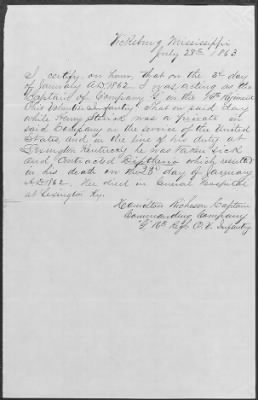 Vicksburg Mississippi
July 28th 1863
I certify on honor, that on the 3d day
of January AD 1862 I was acting as the
Captain of Company G on the 16th Regiment
Ohio Volunteer Infantry That on said day
while Henry was a private in
said Company in the service of the United
States, and in the line of his duty at
Lexington Kentucky he was taken sick
and, Contracted Diptheria which resulted
in his death on the 23d day of January
AD 1862. He died in General Hospital
at Lexington Ky.
Hamilton Richeson Captain
Commanding Company
G 16th Regt O.V. Infantry